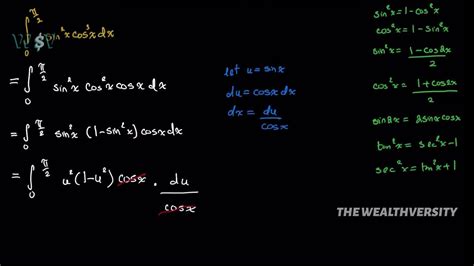 ∫₀^(π/2) sin²x cos³x dx
W $ V
= ∫₀^(π/2) sin²x cos²x cosx dx
= ∫₀^(π/2) sin²x (1-sin²x) cosx dx
= ∫₀^(π/2) u² (1-u²) cosx · du/cosx
let u = sinx
du = cosx dx
dx = du/cosx
sin²x = 1-cos²x
cos²x = 1-sin²x
sin²x = (1-cos2x)/2
cos²x = (1+cos2x)/2
sin2x = 2sinx cosx
tan²x = sec²x-1
sec²x = tan²x+1
THE WEALTHVERSITY